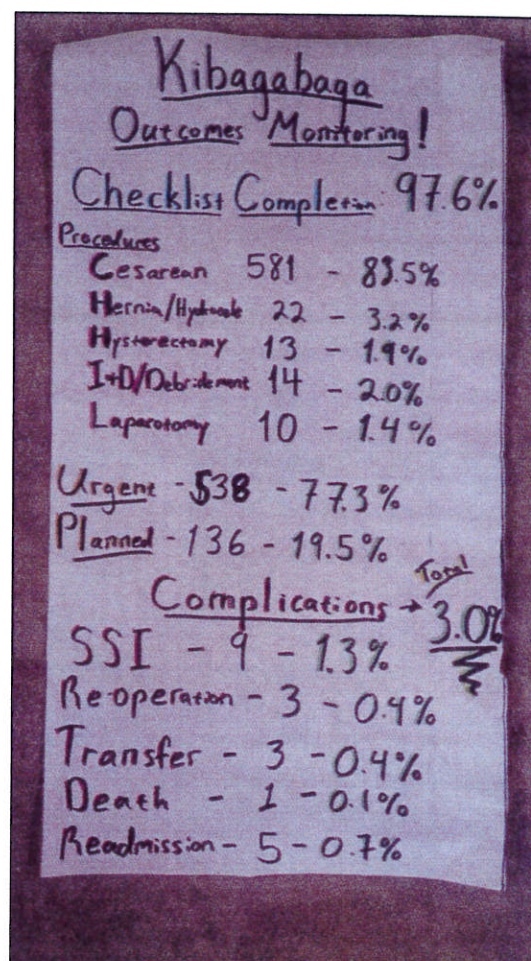 Kibagabaga
Outcomes Monitoring!
Checklist Completion: 97.6%
Procedures
Cesarean 581 - 83.5%
Hernia/Hydrocele 22 - 3.2%
Hysterectomy 13 - 1.9%
I+D/Debridement 14 - 2.0%
Laparotomy 10 - 1.4%
Urgent - 538 - 77.3%
Planned - 136 - 19.5%
Total
Complications → 3.0%
SSI - 9 - 1.3%
Re-operation - 3 - 0.4%
Transfer - 3 - 0.4%
Death - 1 - 0.1%
Readmission - 5 - 0.7%